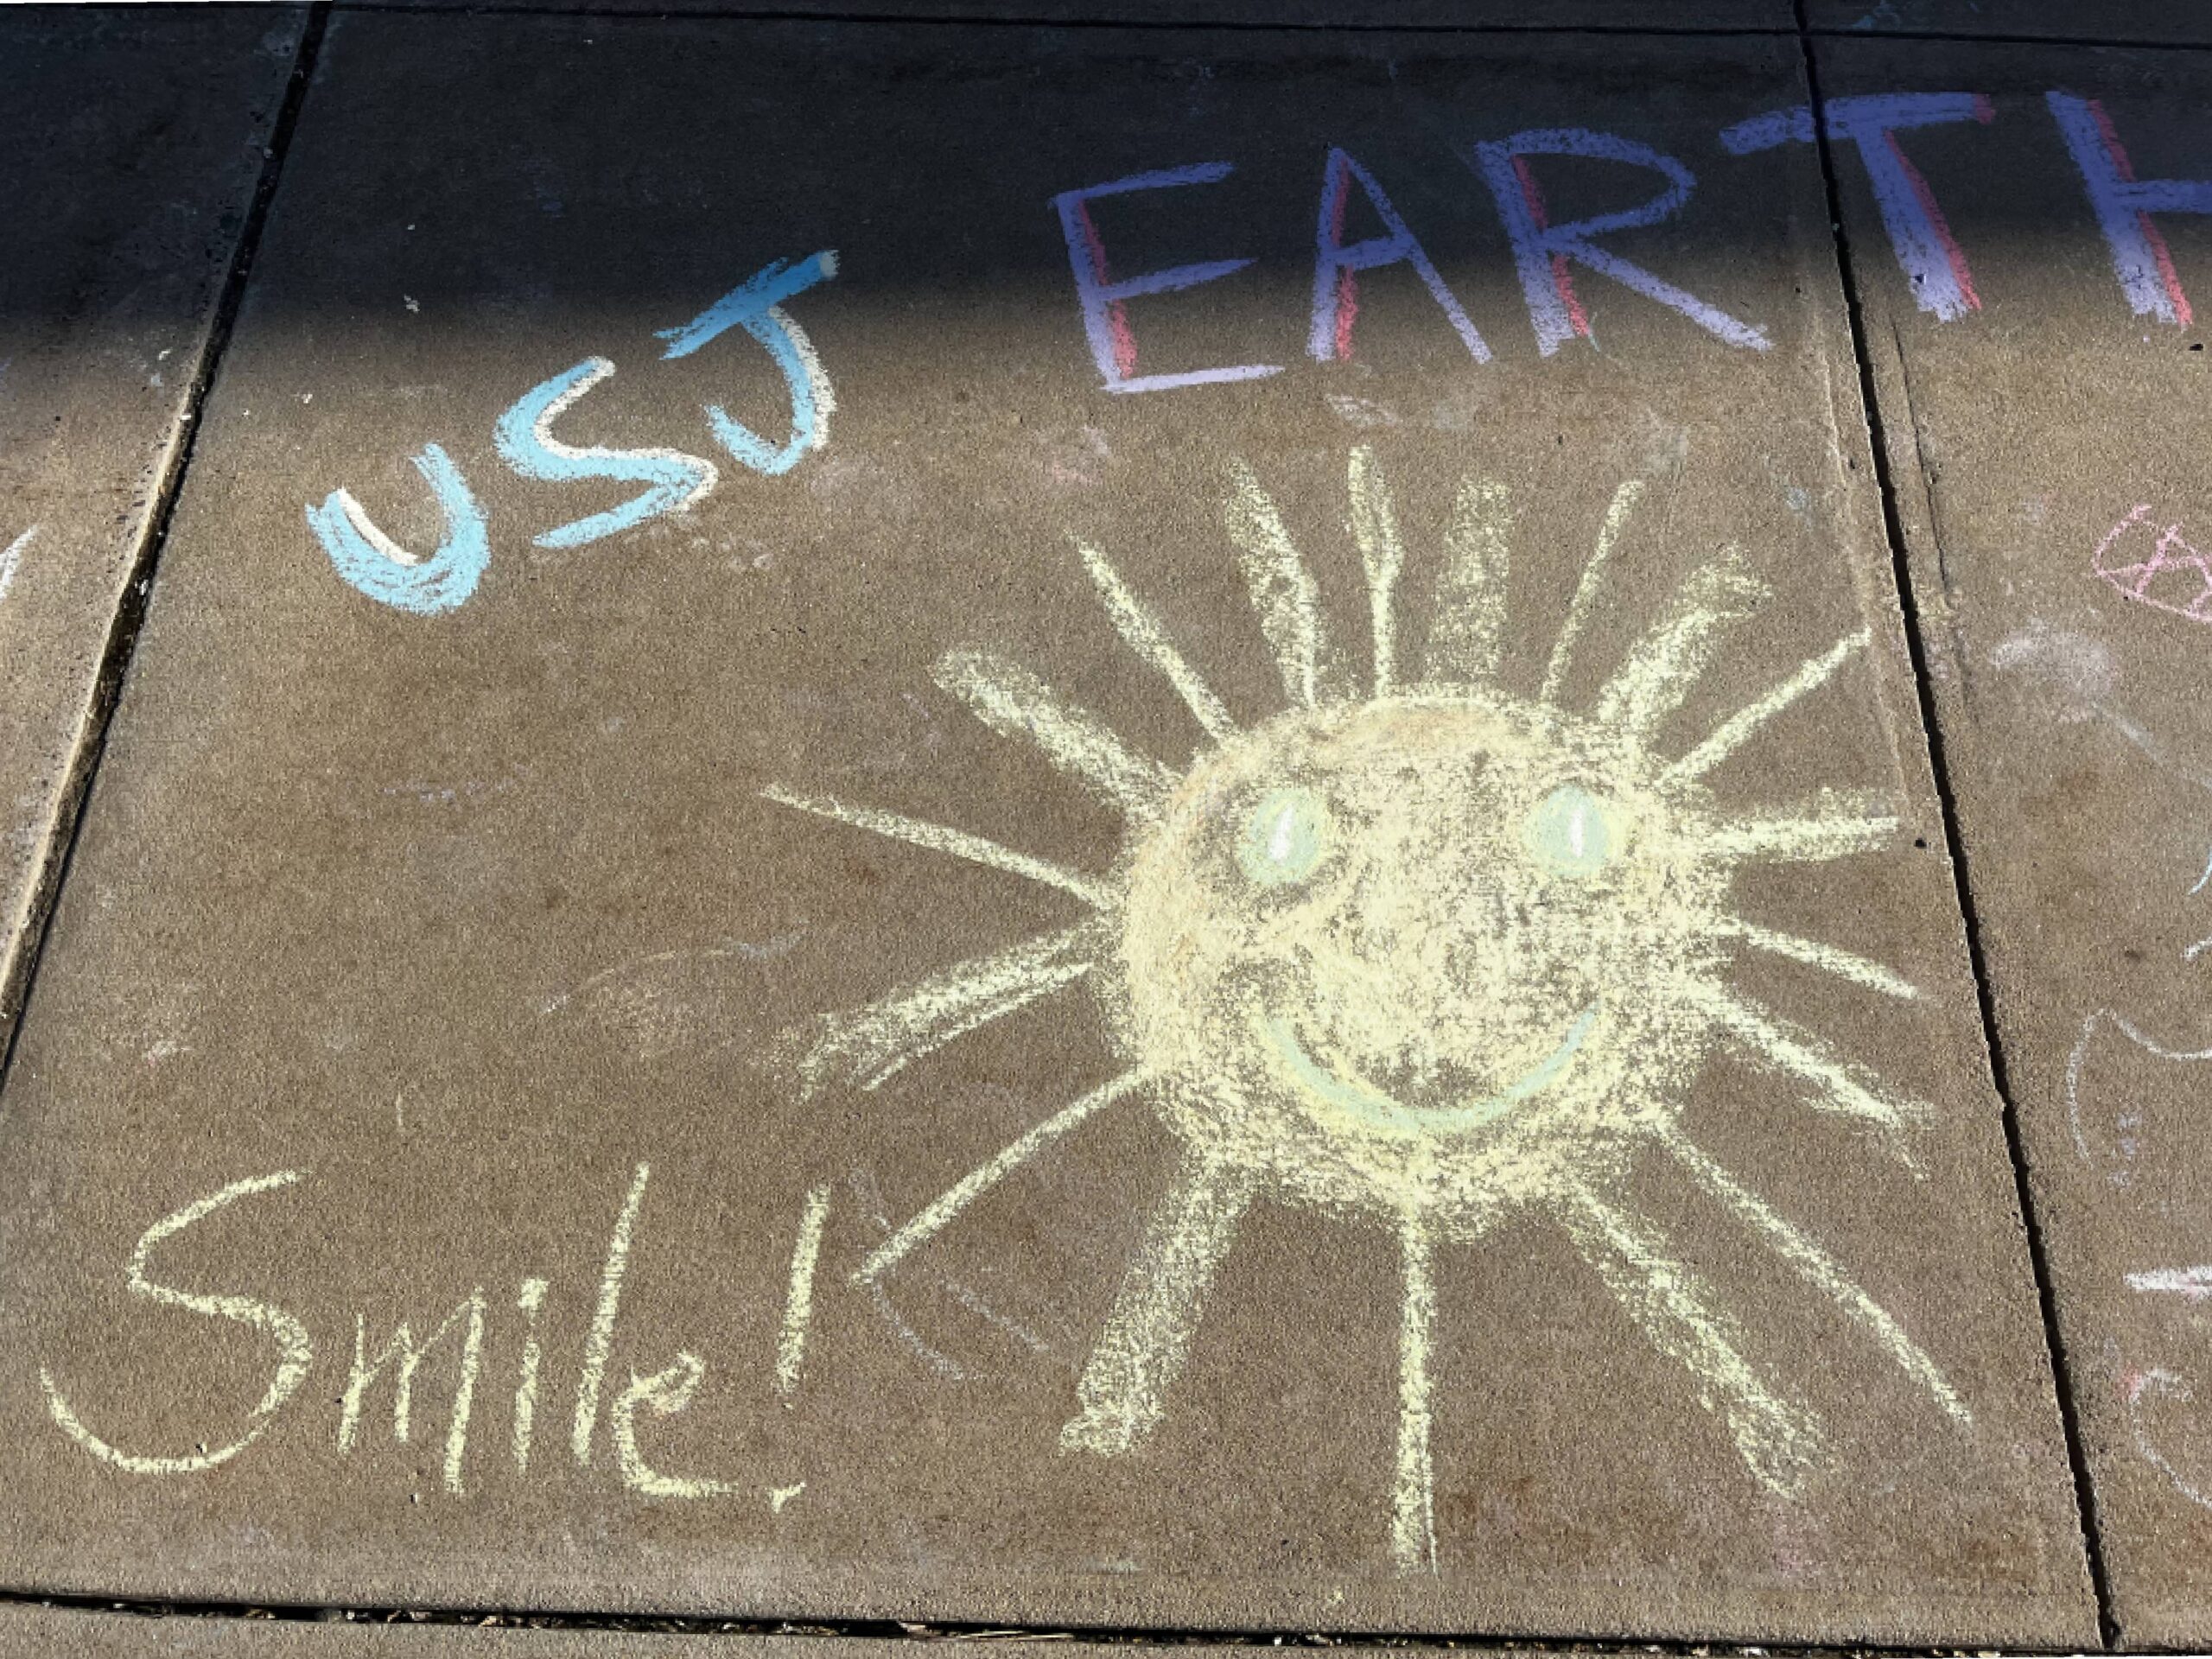 USJ EARTH
Smile!